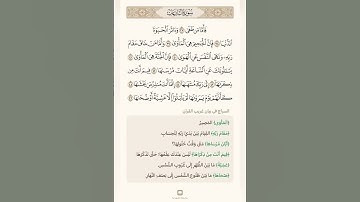 سُورَةُ النَّازِعَاتِ
فَأَمَّا مَن طَغَىٰ ۝ وَءَاثَرَ ٱلْحَيَوٰةَ
ٱلدُّنْيَا ۝ فَإِنَّ ٱلْجَحِيمَ هِىَ ٱلْمَأْوَىٰ ۝ وَأَمَّا مَنْ خَافَ مَقَامَ
رَبِّهِۦ وَنَهَى ٱلنَّفْسَ عَنِ ٱلْهَوَىٰ ۝ فَإِنَّ ٱلْجَنَّةَ هِىَ ٱلْمَأْوَىٰ ۝
يَسْـَٔلُونَكَ عَنِ ٱلسَّاعَةِ أَيَّانَ مُرْسَىٰهَا ۝ فِيمَ أَنتَ مِن
ذِكْرَىٰهَآ ۝ إِلَىٰ رَبِّكَ مُنتَهَىٰهَآ ۝ إِنَّمَآ أَنتَ مُنذِرُ مَن يَخْشَىٰهَا ۝
كَأَنَّهُمْ يَوْمَ يَرَوْنَهَا لَمْ يَلْبَثُوٓا۟ إِلَّا عَشِيَّةً أَوْ ضُحَىٰهَا ۝
السراج في بيان غريب القرآن
﴿الْمَأْوَى﴾ الْمَصِيرُ.
﴿مَقَامَ رَبِّهِ﴾ الْقِيَامَ بَيْنَ يَدَيْ رَبِّهِ لِلْحِسَابِ.
﴿أَيَّانَ مُرْسَاهَا﴾ مَتَى وَقْتُ حُلُولِهَا؟
﴿فِيمَ أَنْتَ مِنْ ذِكْرَاهَا﴾ لَيْسَ عِنْدَكَ عِلْمُهَا حَتَّى تَذْكُرَهَا.
﴿عَشِيَّةً﴾ مَا بَيْنَ الظُّهْرِ إِلَى غُرُوبِ الشَّمْسِ.
﴿ضُحَاهَا﴾ مَا بَيْنَ طُلُوعِ الشَّمْسِ إِلَى نِصْفِ النَّهَارِ.